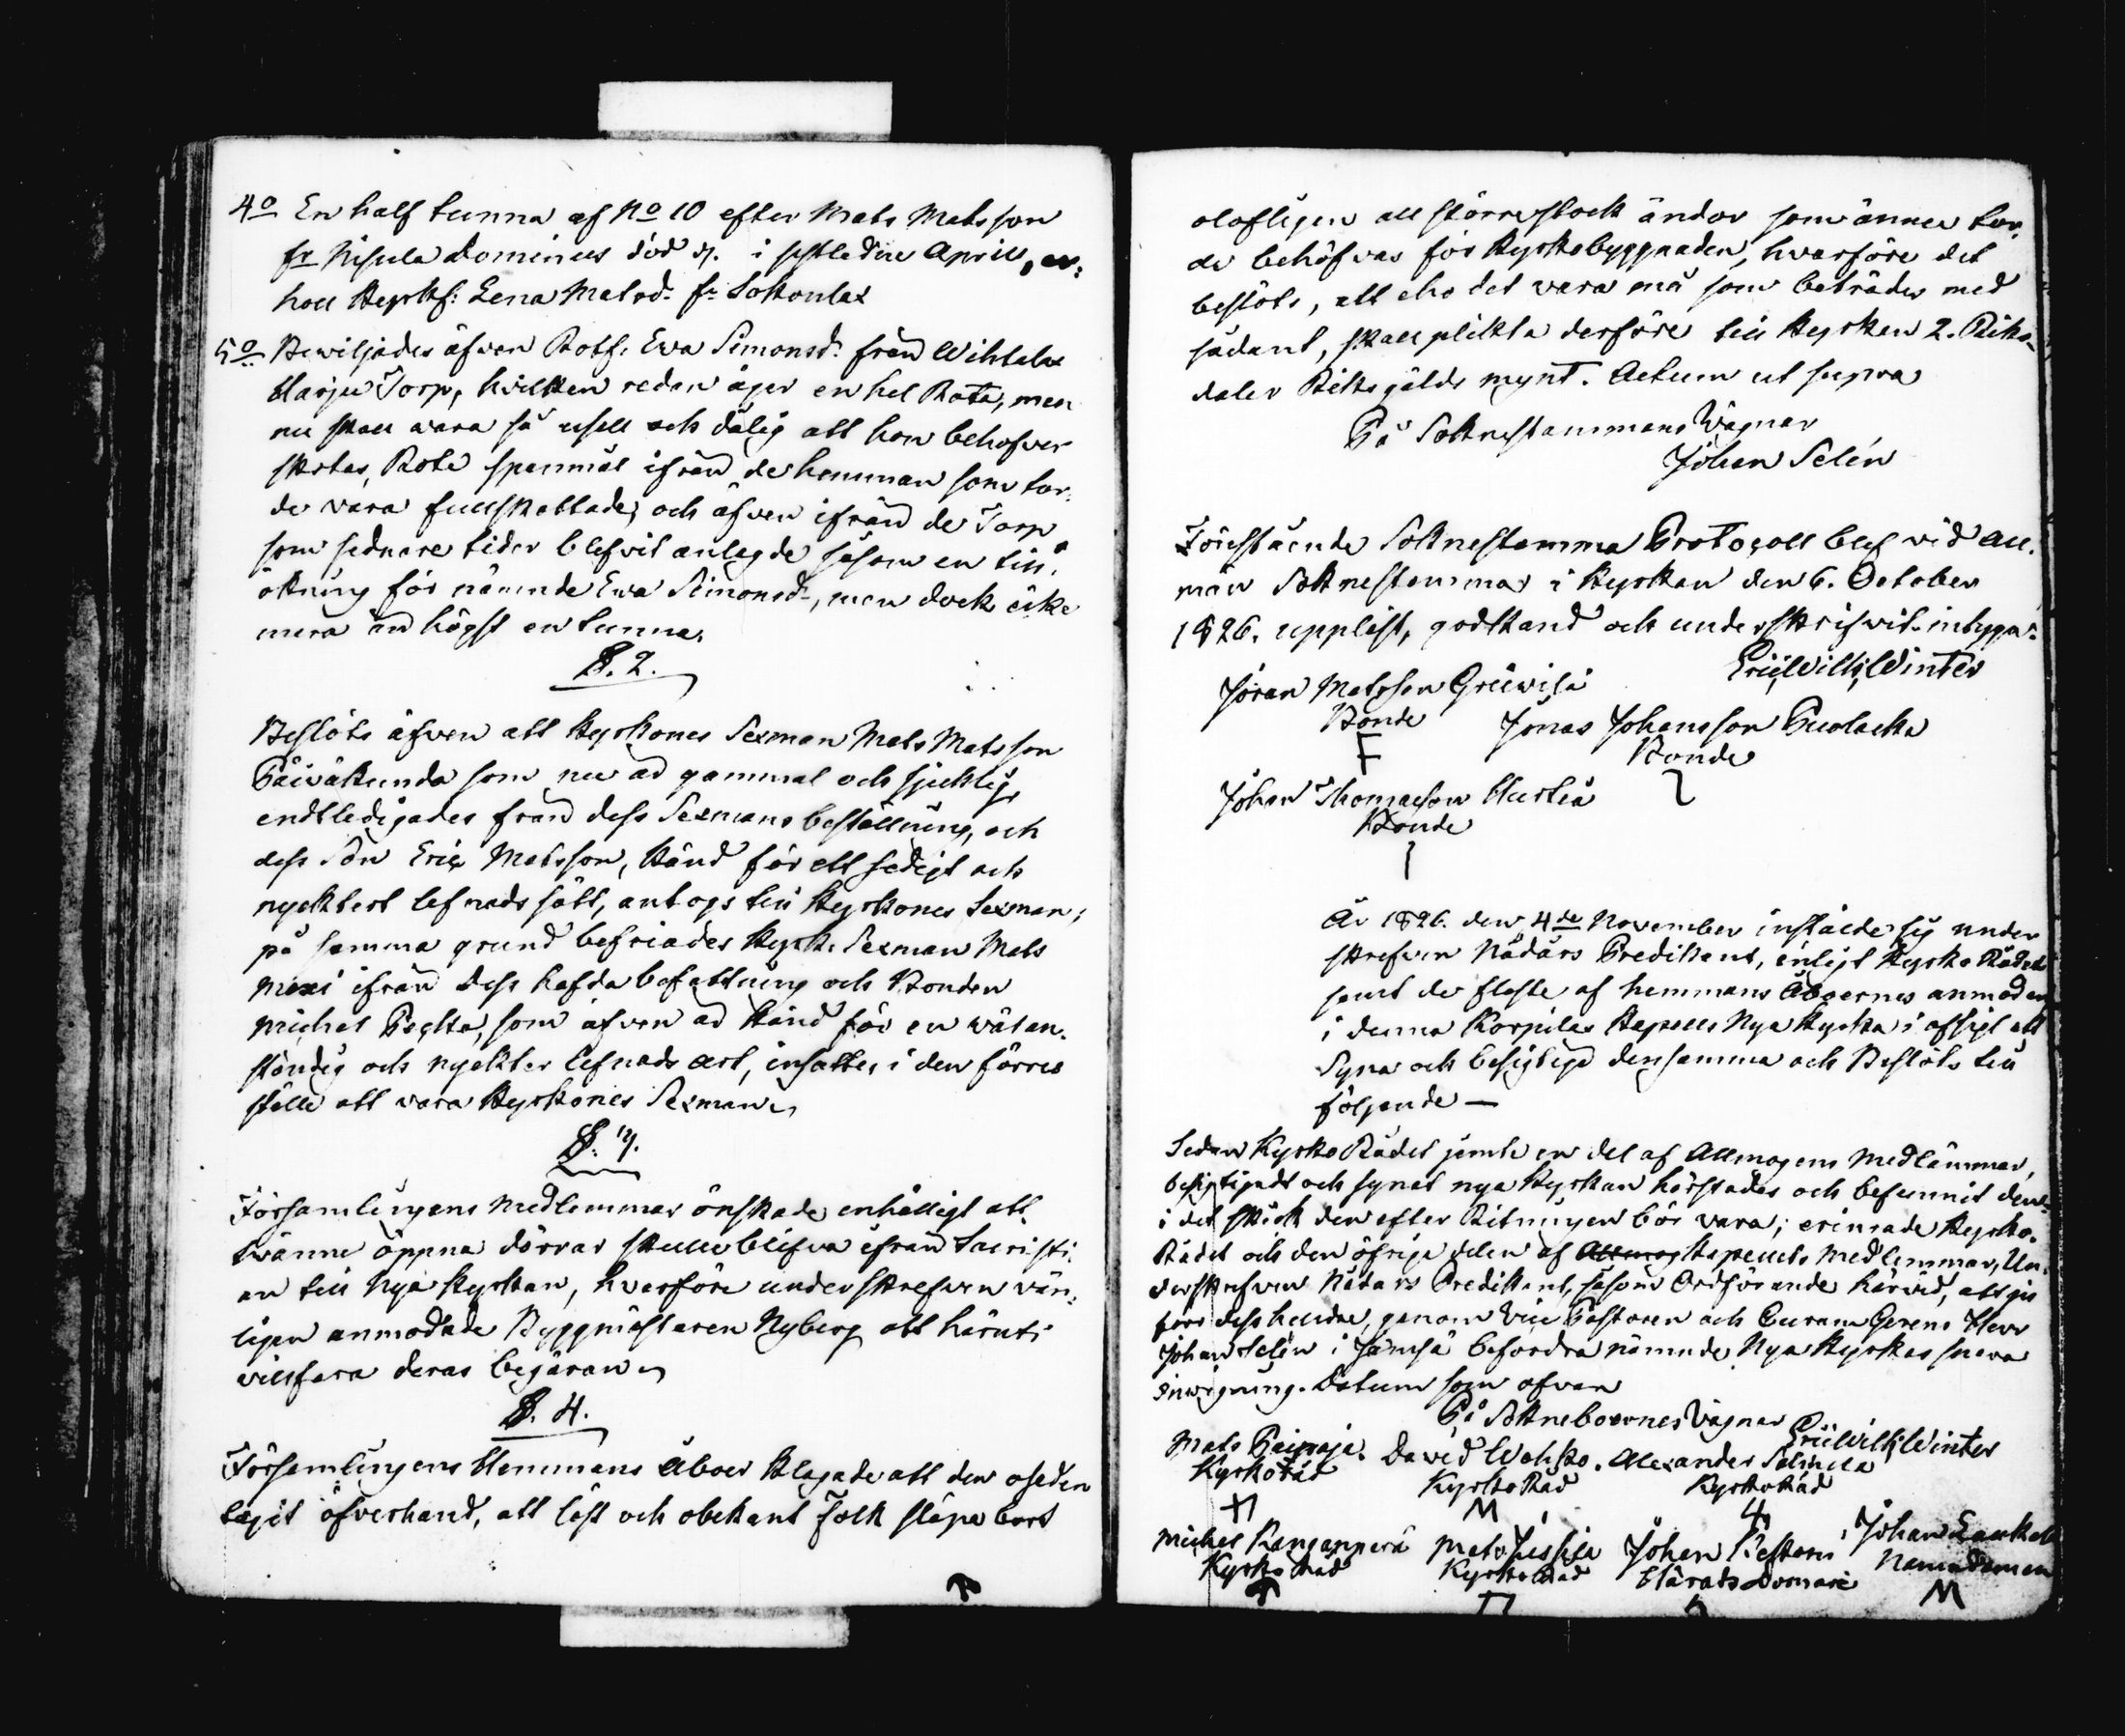 4o En half tunna af No 10 efter Mats Matsson
fr Nisula Dominus död d. i sistledne April, er-
höll Kyrkf: Lena Matsd: fr Sokonlax
5o Bewiljades äfven Rotf: Ewa Simonsd: från Wihtalax
Harju Torp, hvilken redan äger en hel Rota, men
nu skall wara så usell och dålig att hon behofver
skötas, Rote spanmål ifrån de hemman som tor-
de vara fullskattade; och äfven ifrån de Torp
som sednare tider blefvit anlagde såsom en till-
ökning för nämnde Ewa Simonsd:, men dock icke
mera än högst en tunna.
§. 2.
Beslöts äfven att Kyrkones Sexman Mats Matsson
Päiväkunda som nu är gammal och sjuklig,
endtledigades från dess Sexmans beställning, och
dess Son Eric Matsson, känd för ett sedigt och
nycktert lefnads sätt, antogs till Kyrkones Sexman;
på samma grund befriades Kyrk. Sexman Mats
Mexi ifrån dess hafda befattning och Bonden
Michel Peckta, som äfven är känd för en wälan-
ständig och nyckter lefnads art, insattes i den förres
ställe att vara Kyrkones Sexman.
§. 3.
Församlingens Medlemmar önskade enhälligt att
twänne öppna dörrar skulle blifva ifrån Sacristi-
an till Nya Kyrkan, hvarföre underskrefwen vän-
ligen anmodade Byggmästaren Nyberg att häruti
villfara deras begäran.
§. 4.
Församlingens Hemmans Åboer klagade att den oseden
tagit öfverhand, att löst och obekant folk släpa bort
olofligen all större stock ändor som ännu tor-
de behöfvas för Kyrkobyggnaden, hvarföre det
beslöts, att eho det vara må som beträdes med
sådant, skall plikta derföre till Kyrkan 2. Riks-
daler Riksgälds mynt. Actum ut supra
På Soknestammans Wägnar
Johan Selin
Förestående Soknestamma Protocoll blef vid All-
män Soknestamma i Kyrkan den 6. October
1826. uppläst, godkänd och underskrifwit. intygar:
Eric Wilh. Winter
Jöran Matsson Gräwisä
Bonde
F
Jonas Johansson Puolacka
Bonde
Johan Thomasson Hurtia
Bonde
År 1826. den 4de November inställde sig under
skrefven Nådårs Predikant, enligt Kyrko Rådets
samt de fleste af hemmans Åboernes anmodan
i denna Korpilax Kapells Nya Kyrka i afsigt att
Syna och besigtiga densamma och Beslöts till
följande —
Sedan Kyrko Rådet jemte en del af Allmogens Medlämmar,
besigtigadt och synat nya Kyrkan härstädes och befunnit den
i det skick den efter Ritningen bör vara; erinrade Kyrko-
Rådet och den öfriga delen af Allmog Kapellets Medlemmar, Un-
derskrefven Nådårs Predikant, såsom Ordförande härvid, att ju
förr dess heldre, genom Vice Pastoren och Curam Gerens Herr
Johan Selin i Jämsä befordra nämnde Nya Kyrkas snara
inwigning. Datum som ofvan
På Sokneboernes Vägnar
Eric Wilh. Winter
Mats Päiväjä. David Wehko. Alexander Salmela
Kyrkoråd Kyrko Råd Kyrkoråd
M
Michel Kangasperä Mats Jussila Johan Restars Johan Laukola
Kyrko Råd Kyrkoråd Häradsdomare Nämndeman
M